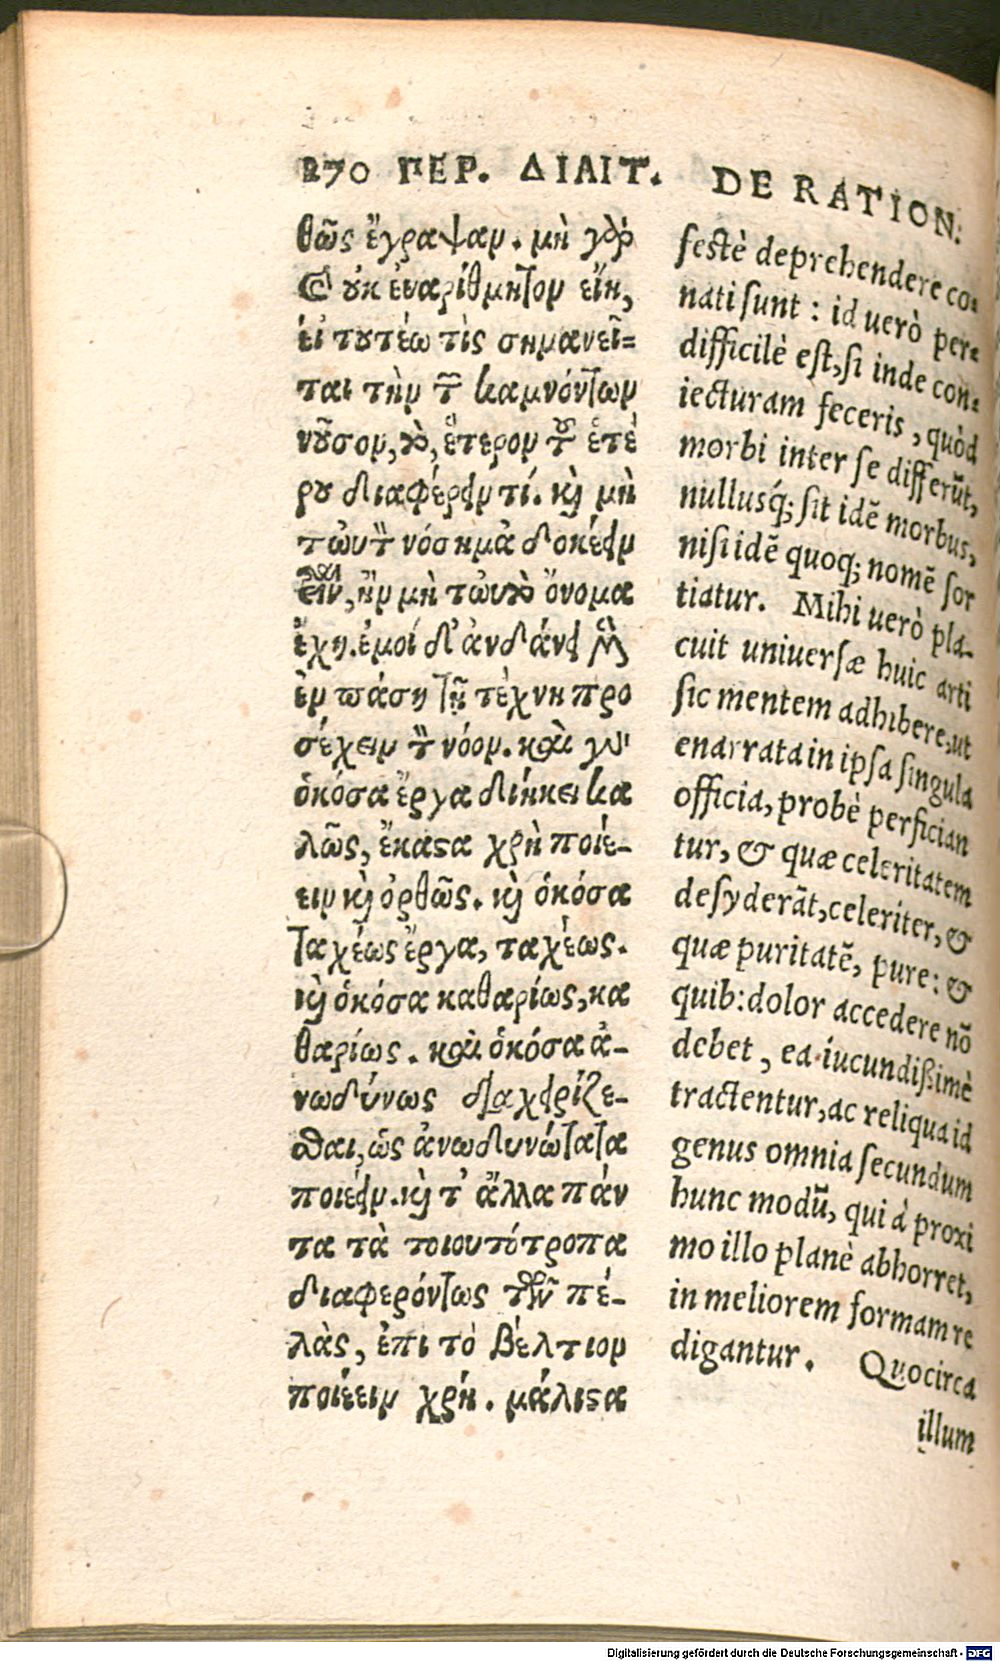 270 ΠΕΡ. ΔΙΑΙΤ.
θῶς ἔγραψαν. μὴ γὰρ
οὐκ ἐναρίθμητον εἴη,
εἰ τουτέω τὶς σημανεῖ-
ται τὴν τῶν καμνόντων
νοῦσον, τὸ, ἕτερον τοῦ ἑτέ
ρου διαφέρειν τί. καὶ μὴ
τὠυτὸν νόσημα δοκέειν
εἶναι, ἢν μὴ τὠυτὸ ὄνομα
ἔχῃ. ἐμοὶ δ' ἀνδάνει μὲν
ἐν πάσῃ τῇ τέχνῃ προ
σέχειν τὸν νόον. καὶ γὰρ
ὁκόσα ἔργα διήκει κα
λῶς, ἕκαστα χρὴ ποιέ-
ειν καὶ ὀρθῶς. καὶ ὁκόσα
ταχέως ἔργα, ταχέως.
καὶ ὁκόσα καθαρίως, κα
θαρίως. καὶ ὁκόσα ἀ-
νωδύνως διαχειρίζε-
σθαι, ὡς ἀνωδυνώτατα
ποιέειν. καὶ τ' ἄλλα πάν
τα τὰ τοιουτότροπα
διαφερόντως τῶν πέ-
λὰς, ἐπι τὸ βέλτιον
ποιέειν χρή. μάλιστα
DE RATION:
festè deprehendere co-
nati sunt: id uerò per-
difficilè est, si inde con-
iecturam feceris, quòd
morbi inter se differūt,
nullusq́; sit idē morbus,
nisi idē quoq; nomē sor
tiatur. Mihi uerò pla-
cuit uniuersæ huic arti
sic mentem adhibere, ut
enarrata in ipsa singula
officia, probè perfician
tur, & quæ celeritatem
desyderāt, celeriter, &
quæ puritatē, pure: &
quib: dolor accedere nō
debet, ea iucundißimè
tractentur, ac reliqua id
genus omnia secundum
hunc modū, qui à proxi
mo illo planè abhorret,
in meliorem formam re
digantur. Quocirca
illum
Digitalisierung gefördert durch die Deutsche Forschungsgemeinschaft - DFG